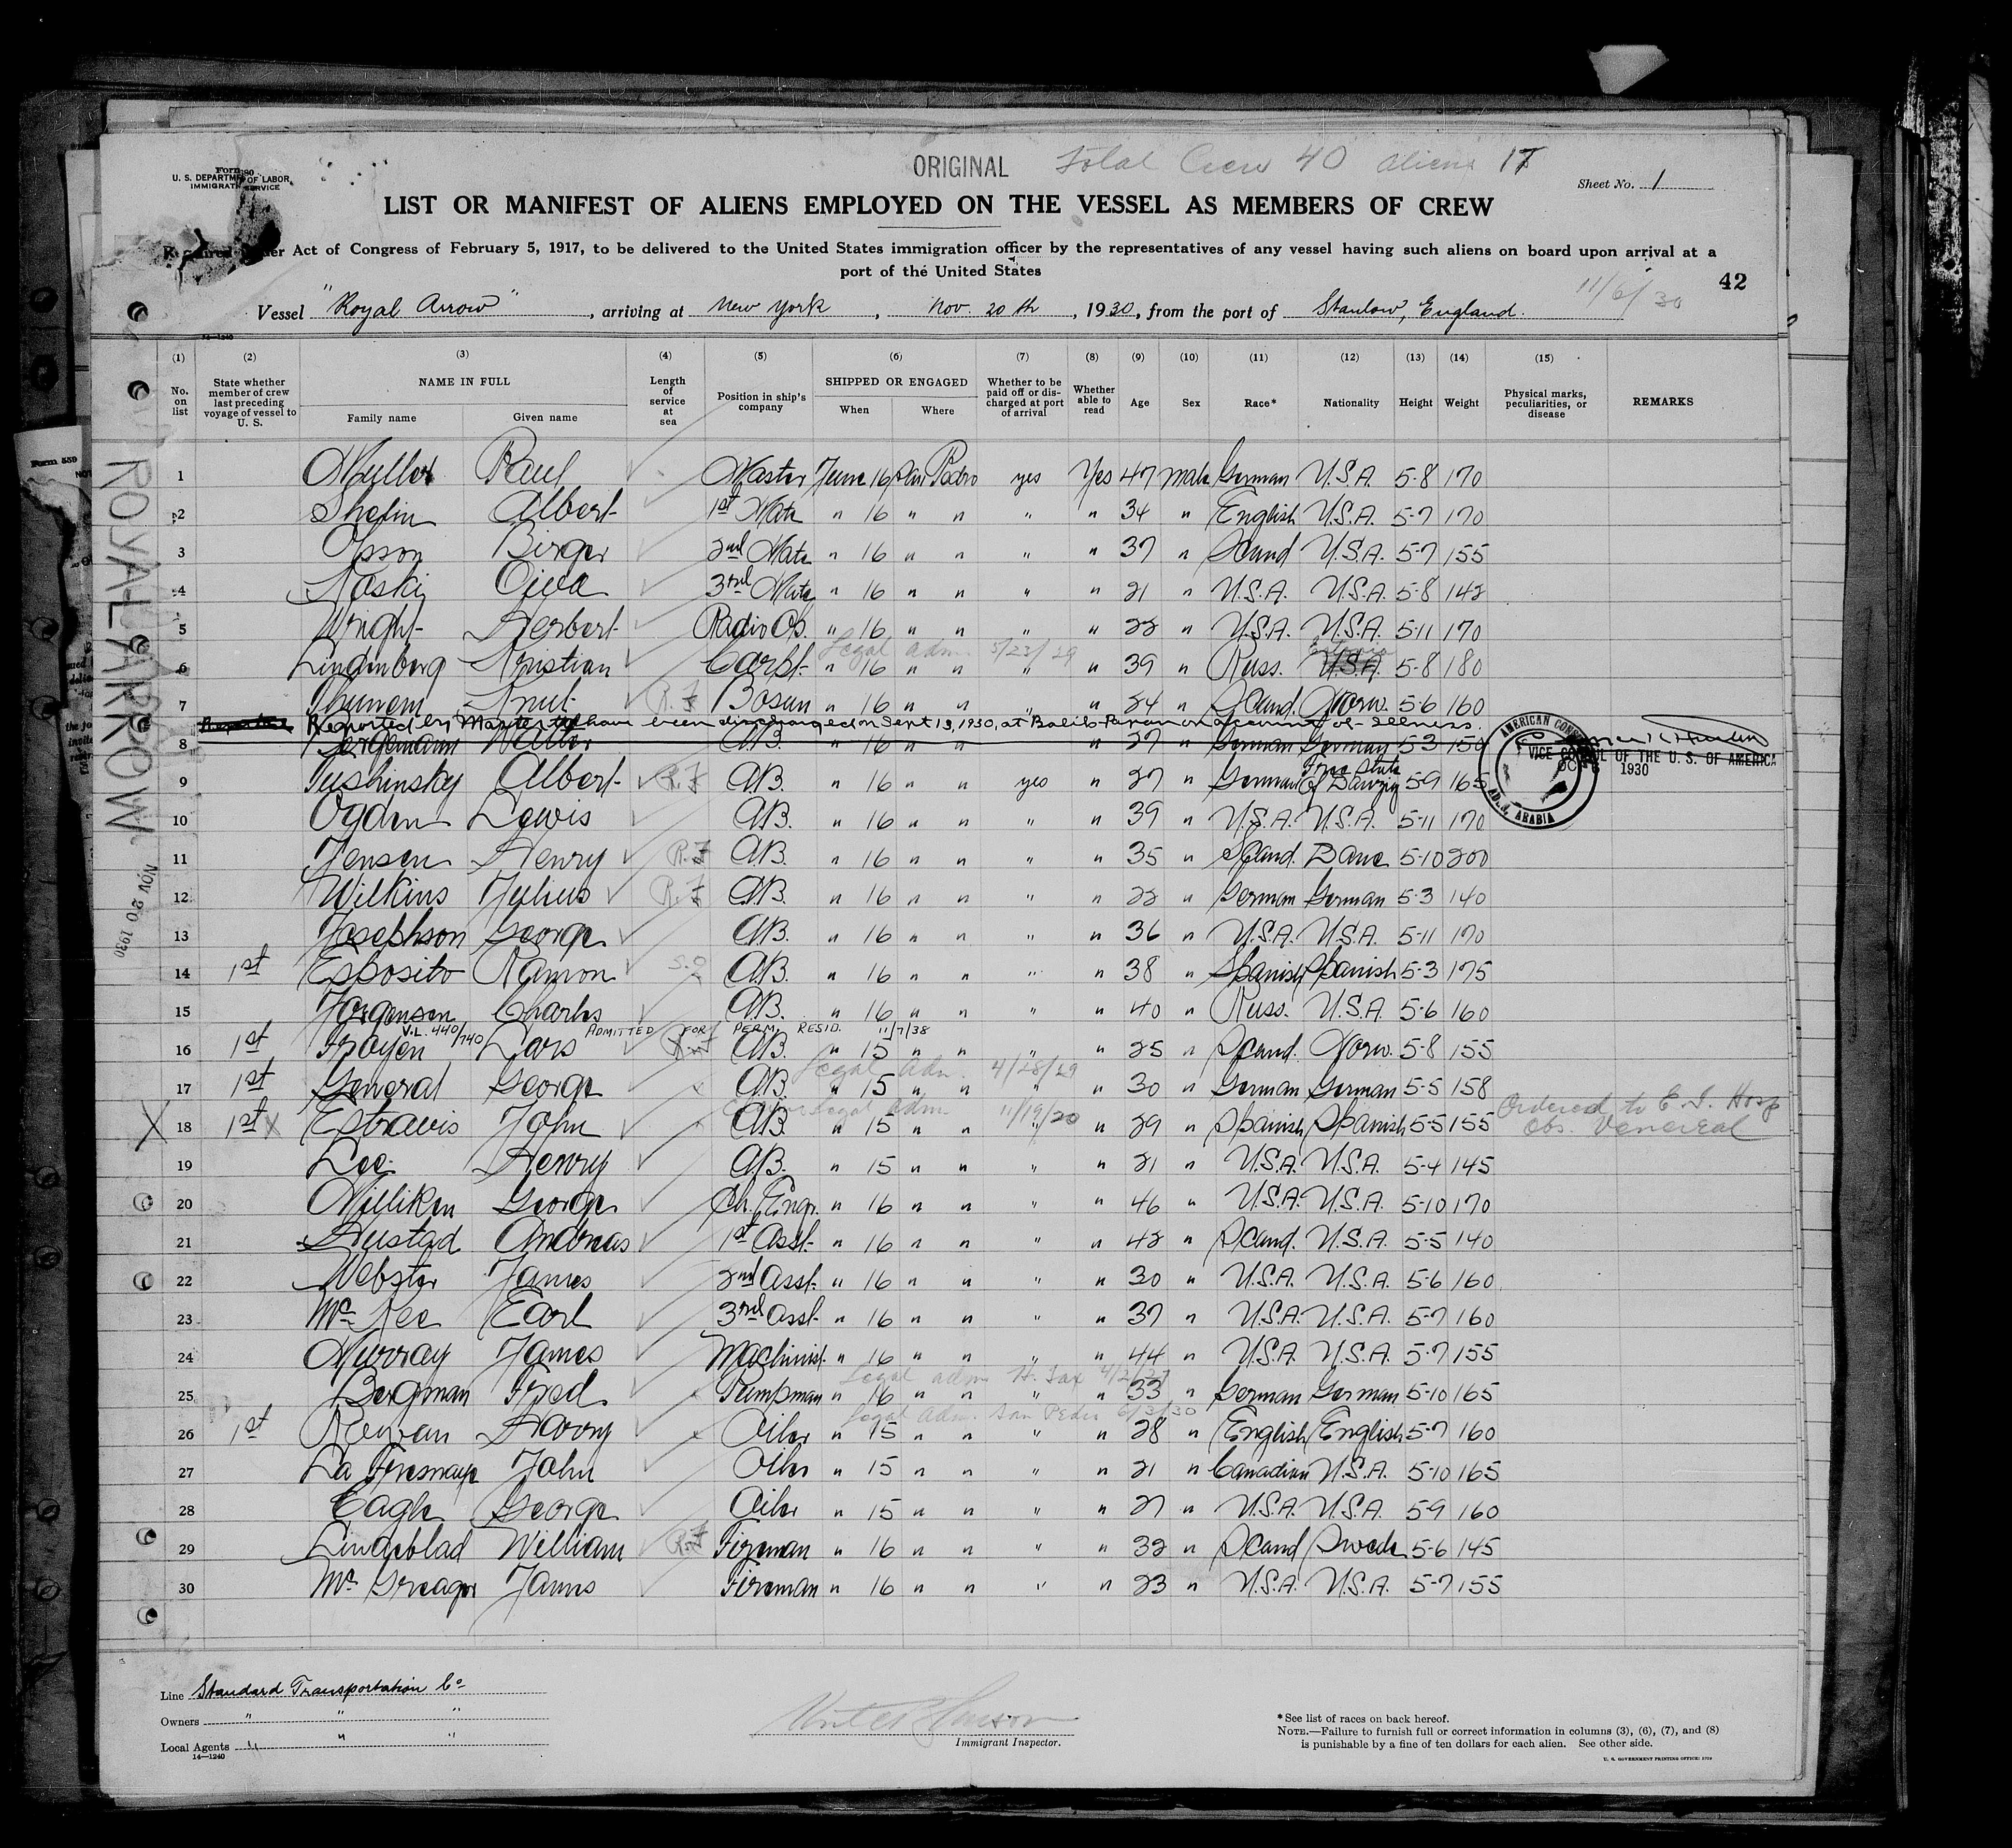 ORIGINAL Total Crew 40 aliens 17
Form 680
U. S. DEPARTMENT OF LABOR
IMMIGRATION SERVICE
Sheet No. 1
LIST OR MANIFEST OF ALIENS EMPLOYED ON THE VESSEL AS MEMBERS OF CREW
Required under Act of Congress of February 5, 1917, to be delivered to the United States immigration officer by the representatives of any vessel having such aliens on board upon arrival at a
port of the United States
42
11/6/30
Vessel "Royal Arrow", arriving at New York, Nov. 20th, 1930, from the port of Stanlow, England.
14—1240
(1) (2) (3) (4) (5) (6) (7) (8) (9) (10) (11) (12) (13) (14) (15)
No. on list State whether member of crew last preceding voyage of vessel to U. S. NAME IN FULL Family name Given name Length of service at sea Position in ship's company SHIPPED OR ENGAGED When Where Whether to be paid off or discharged at port of arrival Whether able to read Age Sex Race* Nationality Height Weight Physical marks, peculiarities, or disease REMARKS
1 Muller Paul Master June 16 San Pedro yes Yes 47 male German U.S.A. 5-8 170
2 Albert 1st Mate " 16 " " " " 34 " English U.S.A. 5-7 170
3 Olsson Birger 2nd Mate " 16 " " " " 37 " Scand U.S.A. 5-7 155
4 Koski Oiva 3rd Mate " 16 " " " " 21 " U.S.A. U.S.A. 5-8 142
5 Wright Herbert Radio Op. " 16 " " " " 22 " U.S.A. U.S.A. 5-11 170
Legal adm 5/23/29
6 Lindenberg Kristian Carpt. " 16 " " " " 39 " Russ. U.S.A. 5-8 180
7 Knut R.F Bosun " 16 " " " " 24 " Scand. Norw. 5-6 160
Reported by Master to have been discharged on Sept 13, 1930, at Balik-Papan on account of illness.
8 Bergemann Walter A.B. " 16 " " 27 " German German 5-3 150
AMERICAN CONSULATE
VICE CONSUL OF THE U. S. OF AMERICA
OCT 1930
ADEN, ARABIA
9 Tushinsky Albert R.F A.B. " 16 " " yes " 27 " German Free State of Danzig 5-9 165
10 Ogden Lewis A.B. " 16 " " " " 39 " U.S.A. U.S.A. 5-11 170
11 Jensen Henry R.F A.B. " 16 " " " " 35 " Scand. Dane 5-10 200
12 Wilkins Julius R.F A.B. " 16 " " " " 22 " German German 5-3 140
13 Josephson George A.B. " 16 " " " " 36 " U.S.A. U.S.A. 5-11 170
14 1st Esposito Ramon S.O A.B. " 16 " " " " 38 " Spanish Spanish 5-3 175
15 Jorgensen Charles A.B. " 16 " " " " 40 " Russ. U.S.A. 5-6 160
V.L. 440/740 ADMITTED FOR PERM. RESID. 11/7/38
16 1st Froyen Lars A.B. " 15 " " " " 25 " Scand. Norw. 5-8 155
Legal Adm. 4/28/29
17 1st General George A.B. " 15 " " " " 30 " German German 5-5 158
legal adm 11/19/20
X 18 1st X Estravis John A.B. " 15 " " " " 29 " Spanish Spanish 5-5 155 Ordered to E. I. Hosp
obs. Venereal
19 Lee Henry A.B. " 15 " " " " 21 " U.S.A. U.S.A. 5-4 145
20 Milliken George Ch. Engr. " 16 " " " " 46 " U.S.A. U.S.A. 5-10 170
21 Hustad Andreas 1st Asst. " 16 " " " " 42 " Scand. U.S.A. 5-5 140
22 Webster James 2nd Asst. " 16 " " " " 30 " U.S.A. U.S.A. 5-6 160
23 Mc Kee Earl 3rd Asst. " 16 " " " " 37 " U.S.A. U.S.A. 5-7 160
24 Murray James Machinist " 16 " " " " 44 " U.S.A. U.S.A. 5-7 155
Legal adm
25 Bergman Fred Pumpman " 16 " " " " 33 " German German 5-10 165
Legal Adm. San Pedro 6/3/30
26 1st Rowan Harry Oiler " 15 " " " " 28 " English English 5-7 160
27 La Fresnaye John Oiler " 15 " " " " 21 " Canadian U.S.A. 5-10 165
28 Eagle George Oiler " 15 " " " " 27 " U.S.A. U.S.A. 5-9 160
29 Lindeblad William R.F Fireman " 16 " " " " 32 " Scand Swede 5-6 145
30 Mc Greagor James Fireman " 16 " " " " 23 " U.S.A. U.S.A. 5-7 155
ROYAL ARROW NOV 20 1930
Line Standard Transportation Co
Owners " " "
Local Agents " " "
14—1240
Immigrant Inspector.
*See list of races on back hereof.
NOTE.—Failure to furnish full or correct information in columns (3), (6), (7), and (8)
is punishable by a fine of ten dollars for each alien. See other side.
U. S. GOVERNMENT PRINTING OFFICE:
Form 559